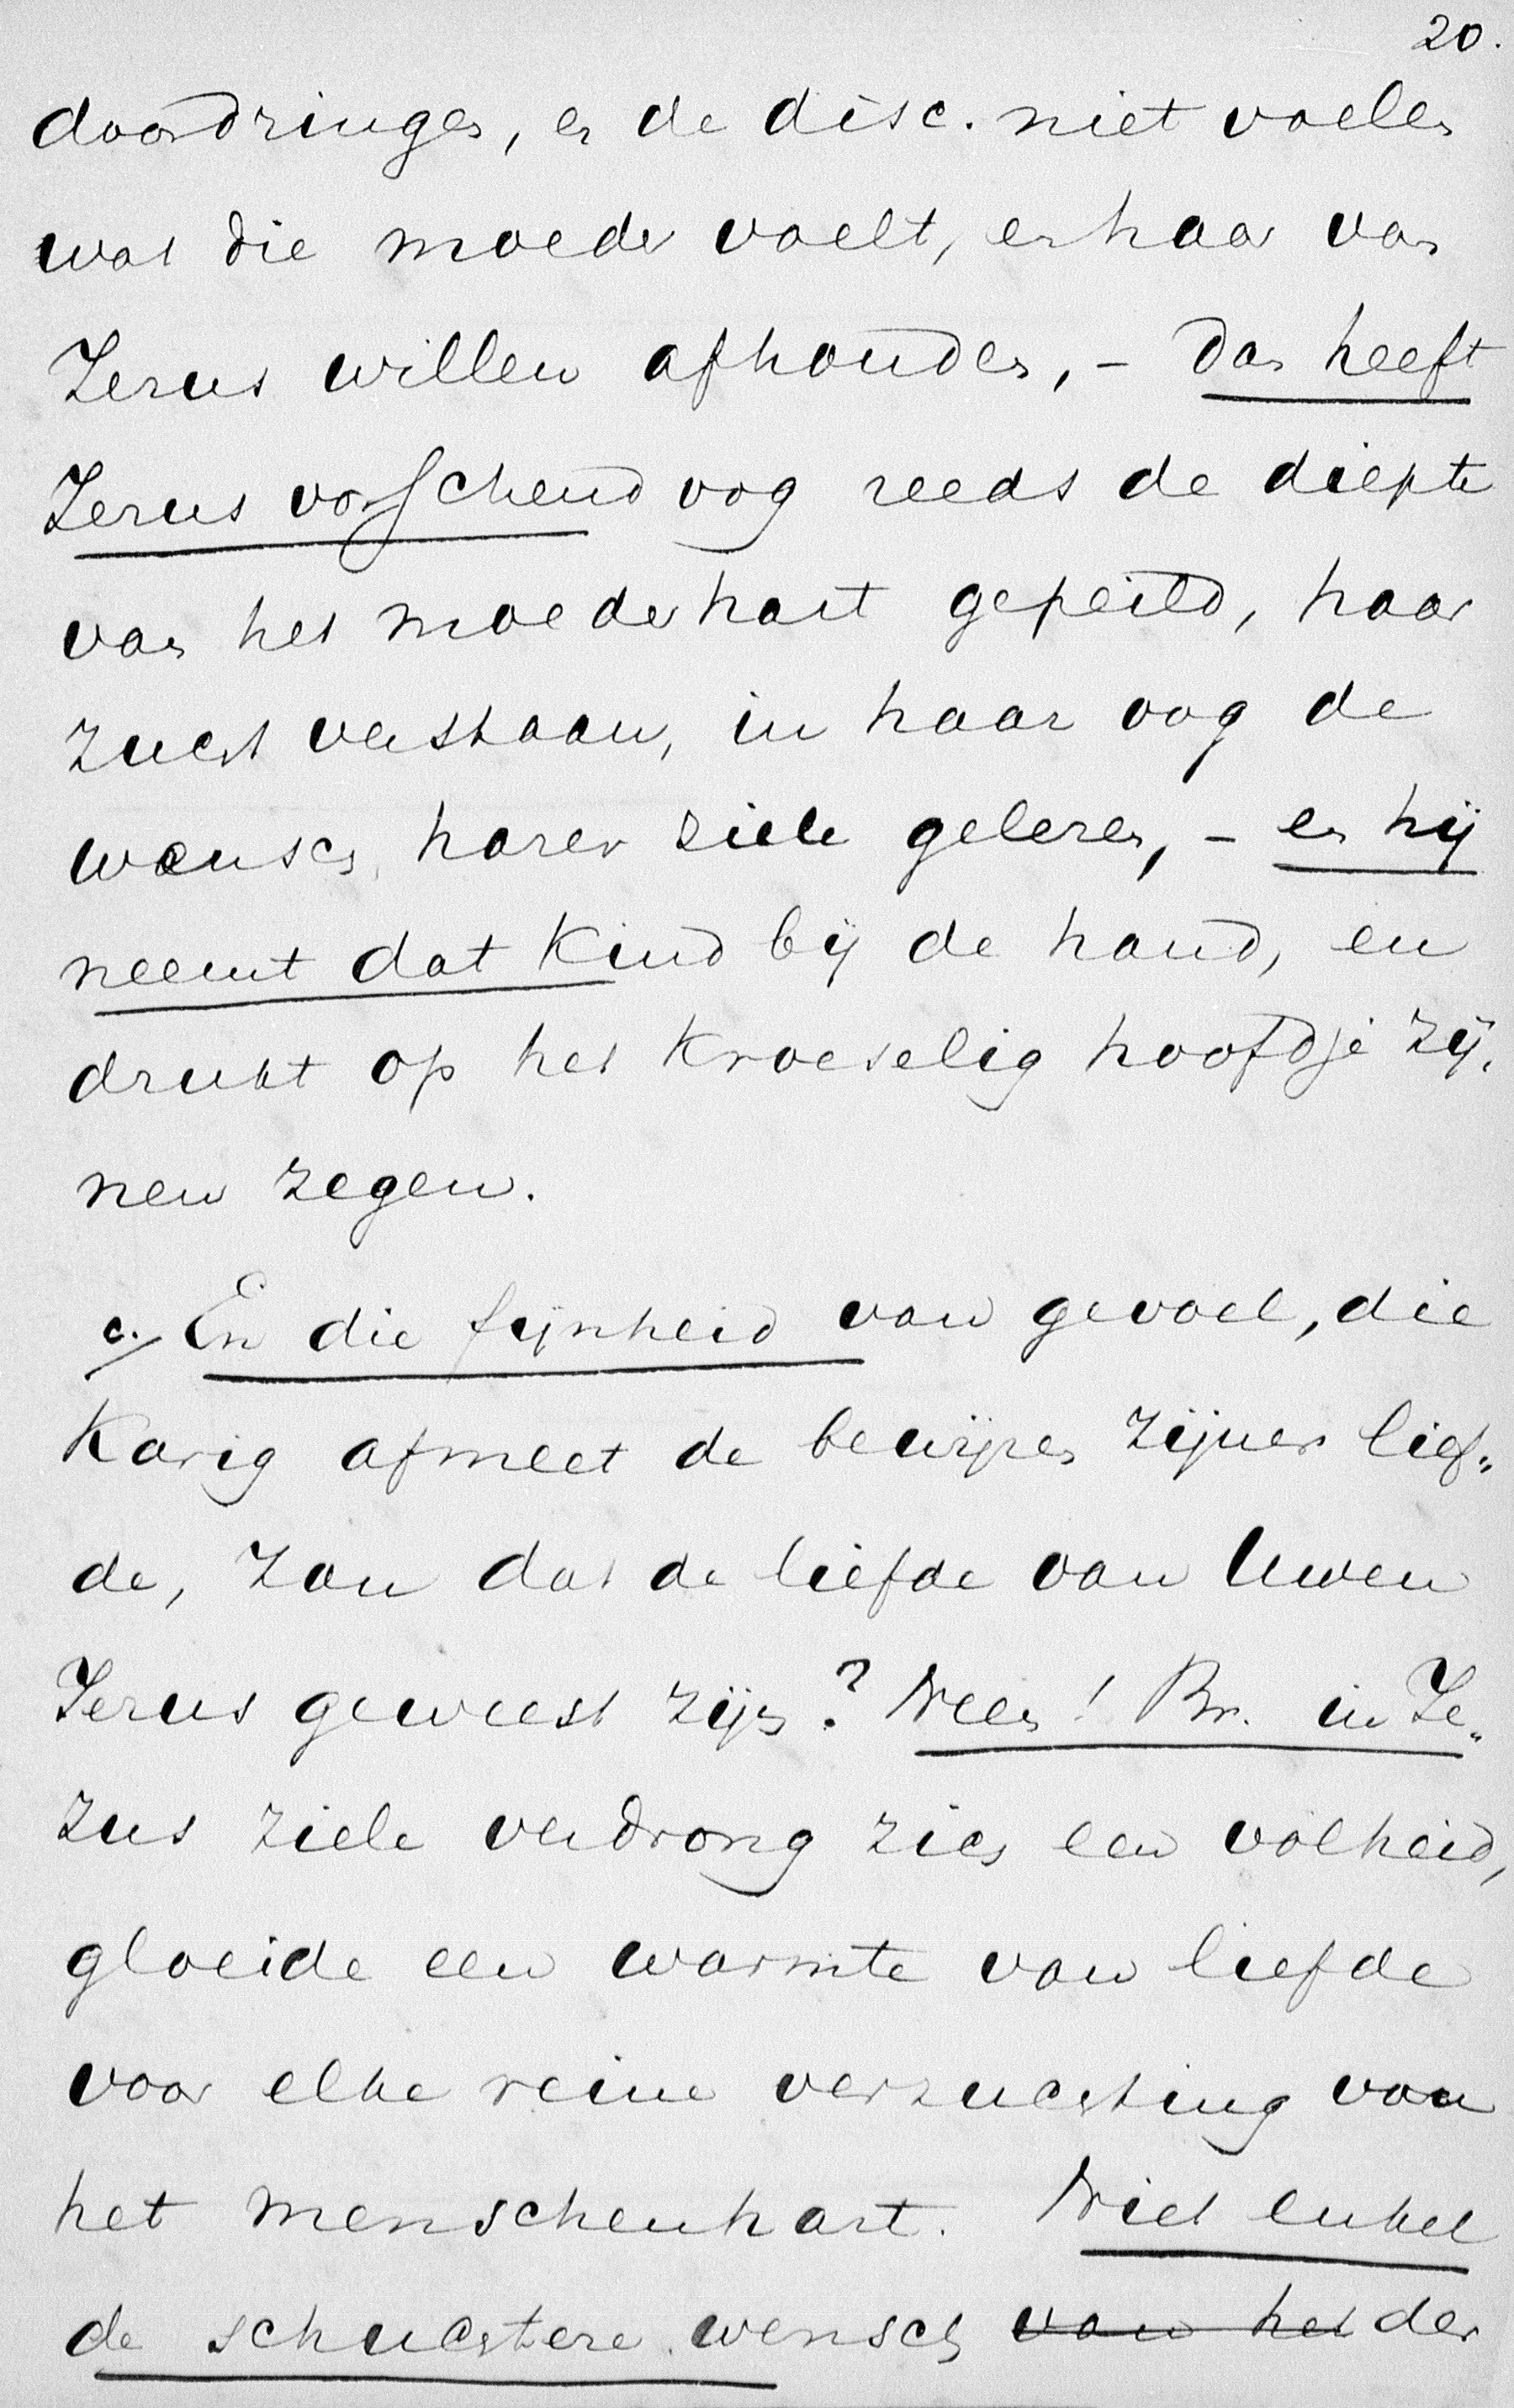 20.
doordringen, en de disc. niet voelen
wat die moeder voelt, en haar van
Jezus willen afhouden, - dan heeft
Jezus vorschend oog reeds de diepte
van het moederhart gepeild, haar
zucht verstaan, in haar oog de
wensch harer ziele gelezen, - en hij
neemt dat kind bij de hand, en
drukt op het kroeselig hoofdje zij-
nen zegen.
c./ En die fijnheid van gevoel, die
karig afmeet de bewijzen zijner lief-
de, zou dat de liefde van Uwen
Jezus geweest zijn? Neen! Br. in Je-
zus ziele verdrong zich een volheid,
gloeide een warmte van liefde
voor elke reine verzuchting van
het menschenhart. Niet enkel
de schuchtere wensch van het der